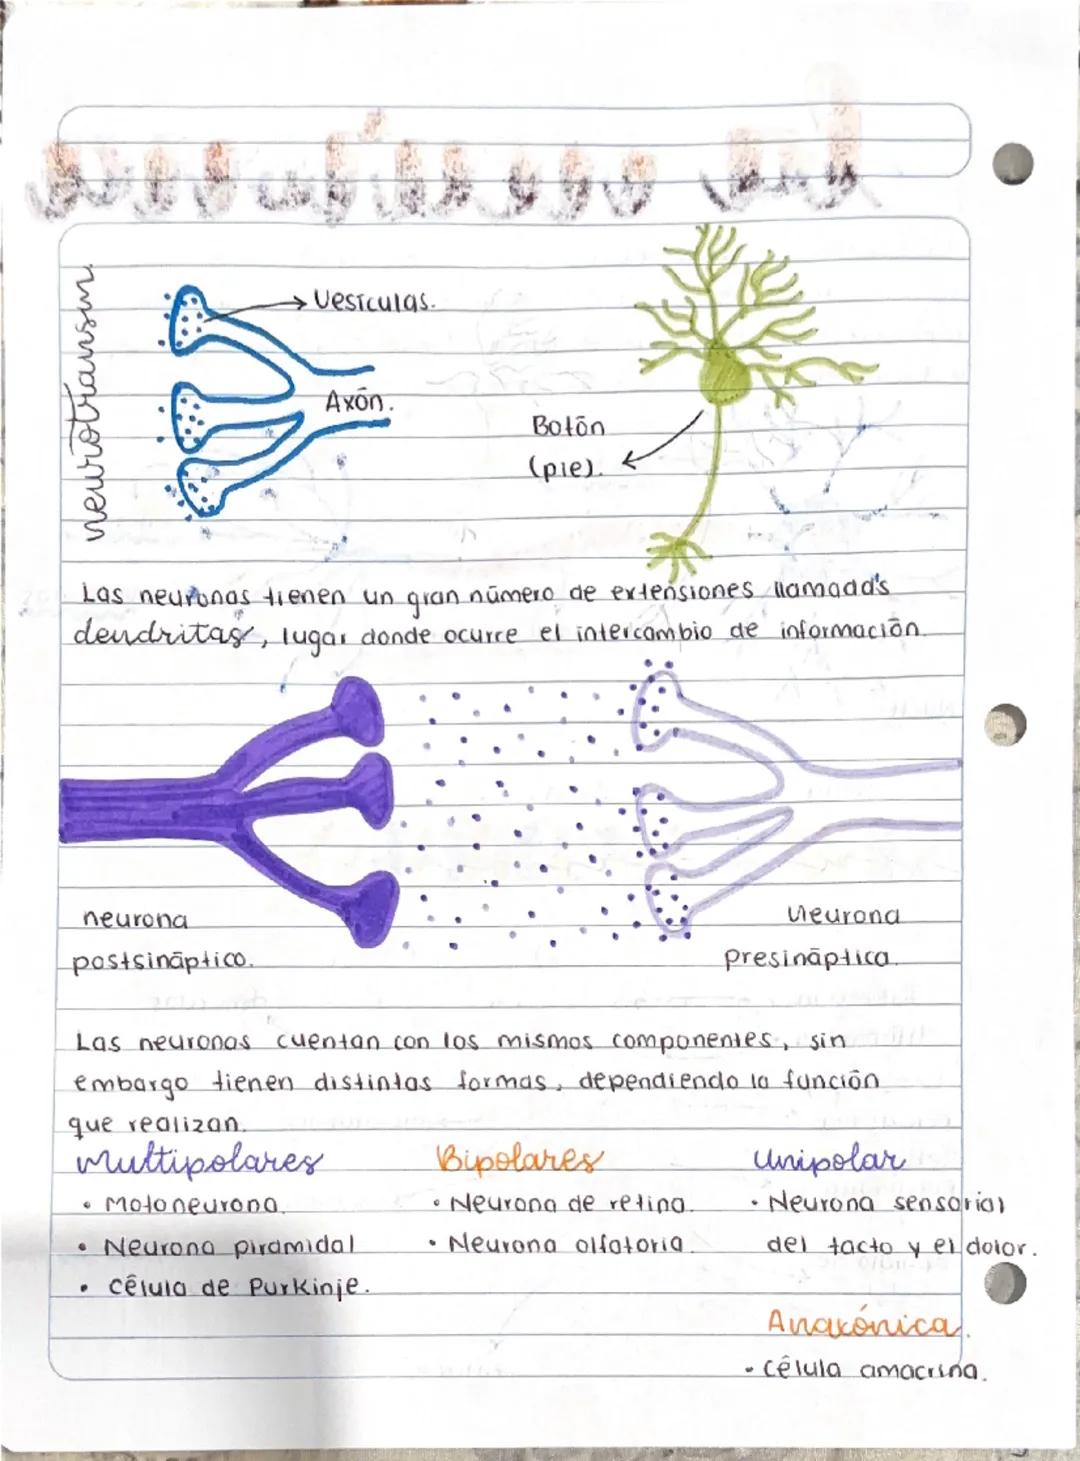 neurotransm.
Vesiculas.
Axón.
Botón
(pie).
Las neuronas tienen un gran número de extensiones llamadas
dendritas, lugar donde ocurre el intercambio de información.
neurona
postsináptico.
Neurona
presináptica.
Las neuronas cuentan con los mismos componentes, sin
embargo tienen distintas formas, dependiendo la función
que realizan.
Multipolares
• Motoneurona.
• Neurona piramidal
• Célula de Purkinje.
Bipolares
• Neurona de retina.
• Neurona olfatoria.
Unipolar
• Neurona sensorial
del tacto y el dolor.
Anaxónica.
• Célula amacrina.